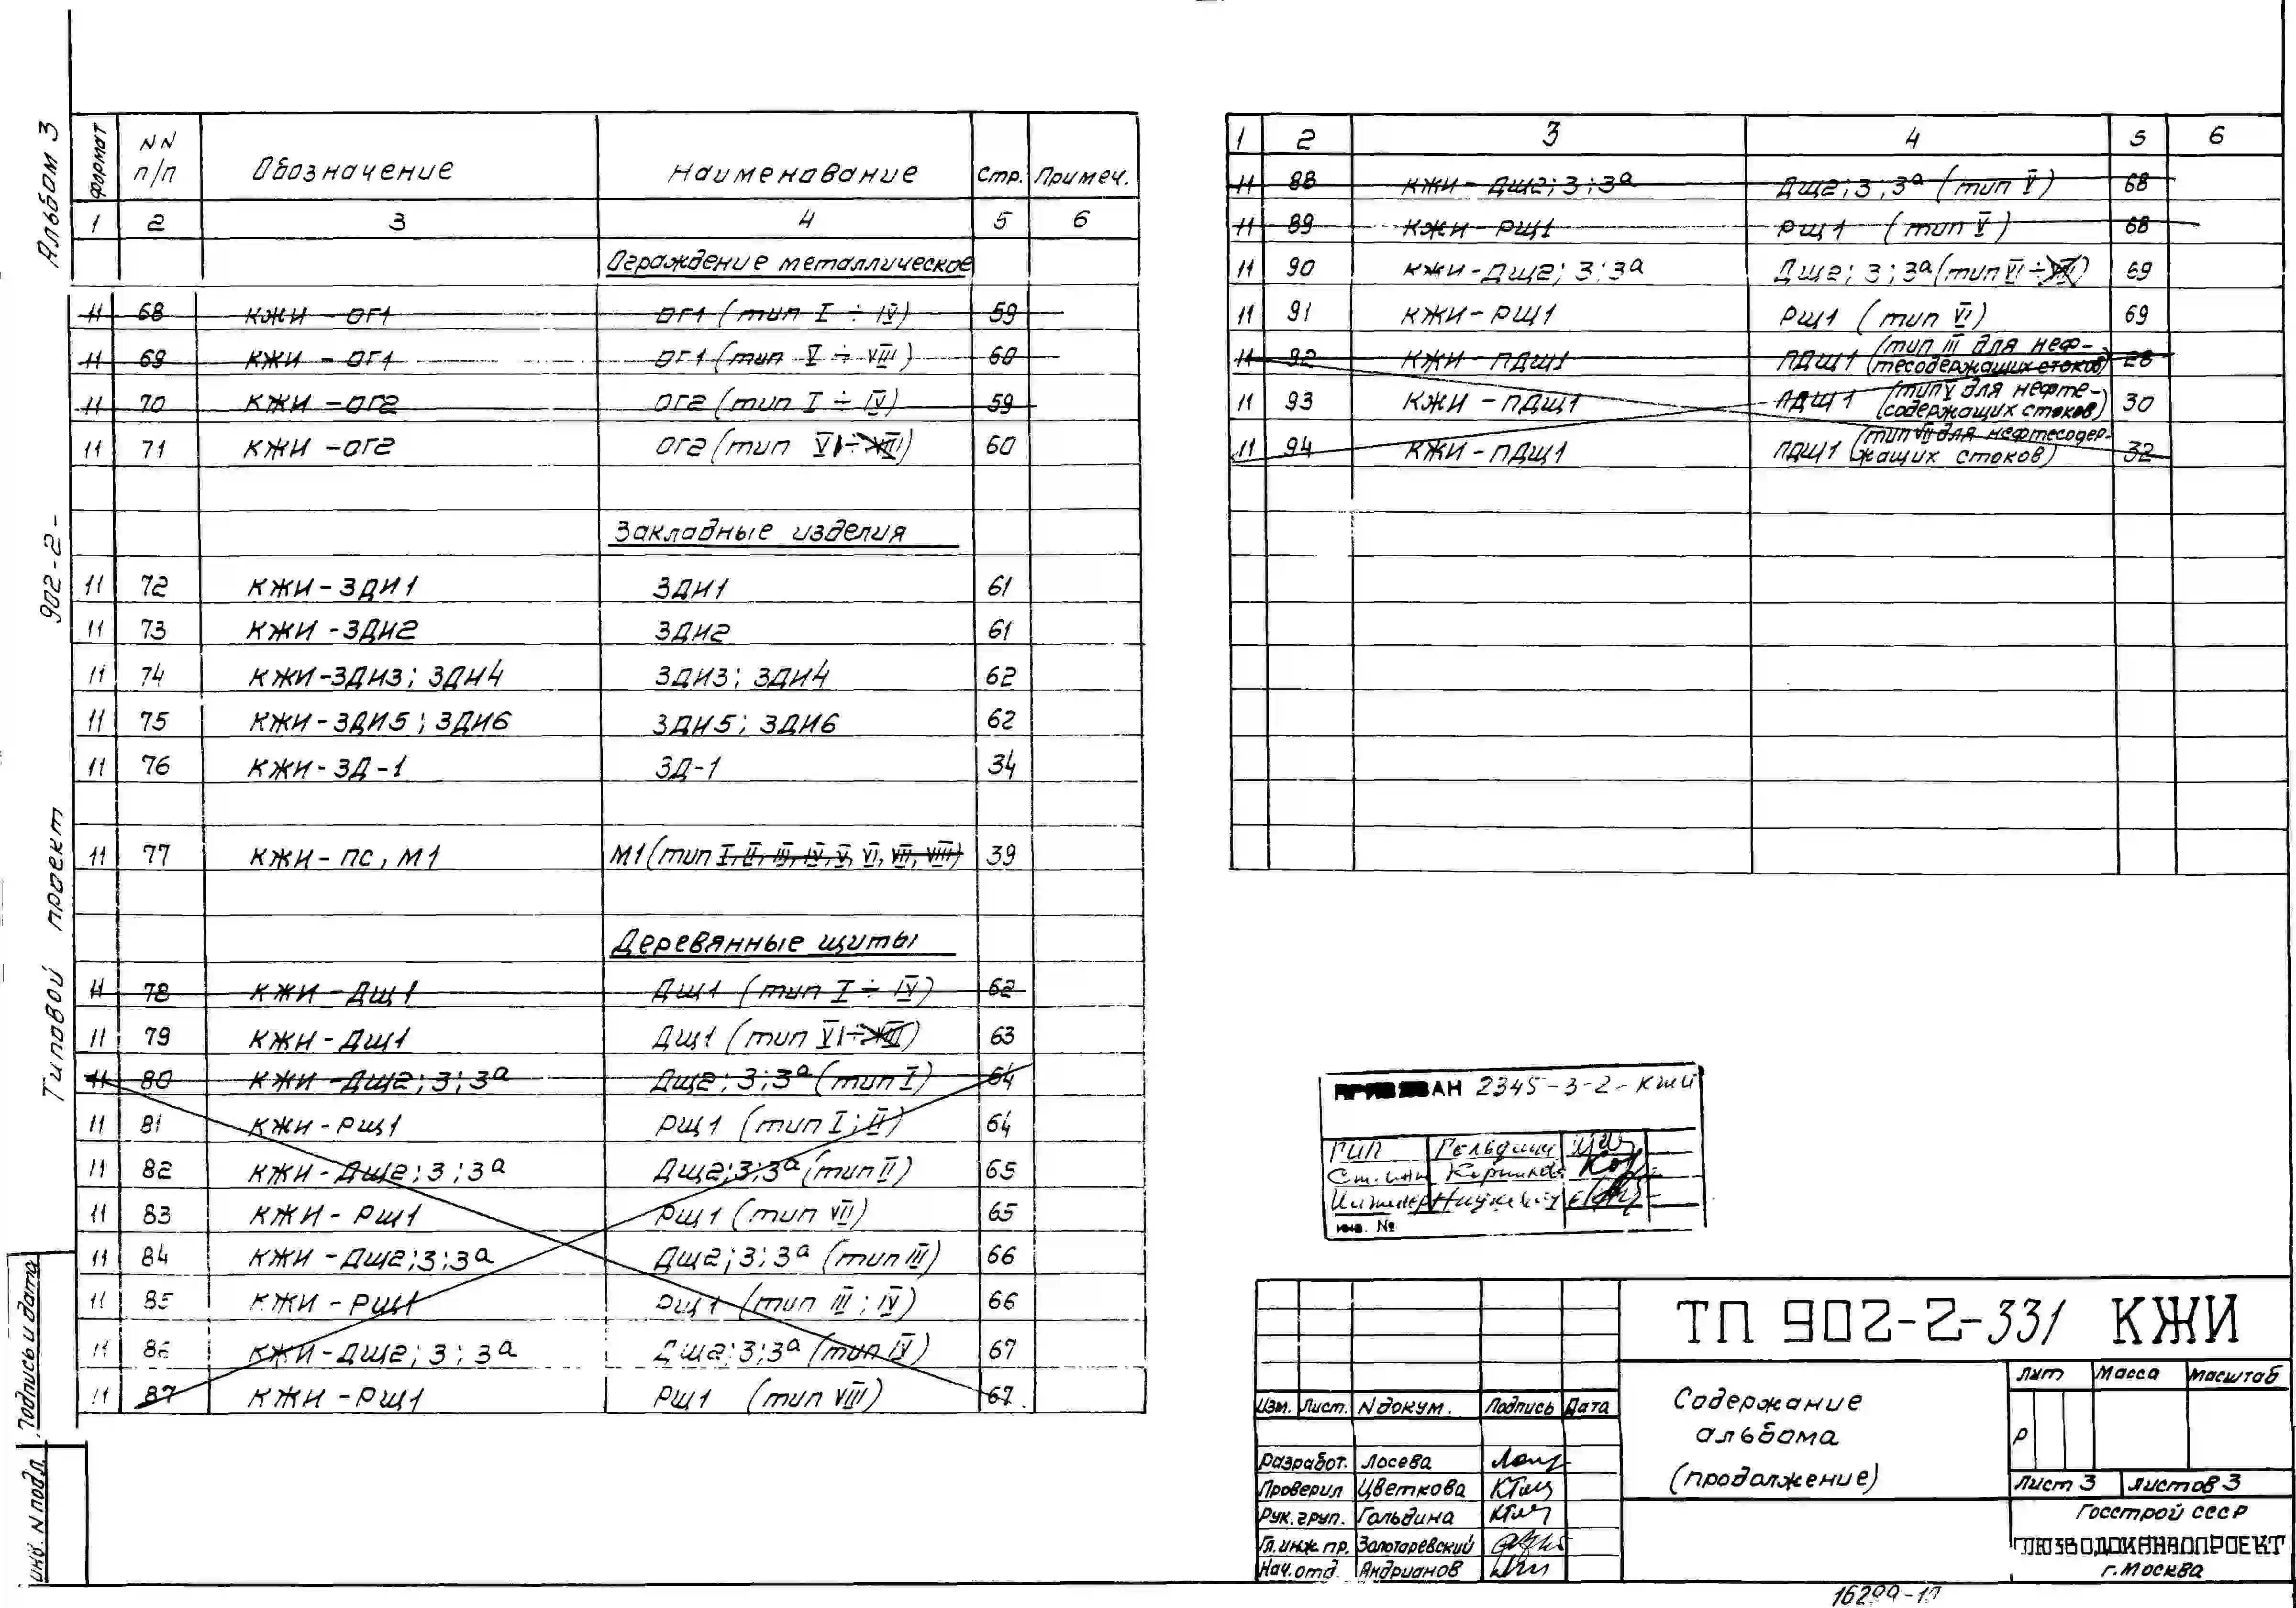 Альбом 3
902-2-
Типовой проект
Подпись и дата
Инв. N подл.
Формат | NN п/п | Обозначение | Наименование | Стр. | Примеч.
1 | 2 | 3 | 4 | 5 | 6
Ограждение металлическое
11 | 68 | КЖИ - ОГ1 | ОГ1 (тип I ÷ IV) | 59
11 | 69 | КЖИ - ОГ1 | ОГ1 (тип V ÷ VIII) | 60
11 | 70 | КЖИ - ОГ2 | ОГ2 (тип I ÷ IV) | 59
11 | 71 | КЖИ - ОГ2 | ОГ2 (тип VI ÷ VIII) | 60
Закладные изделия
11 | 72 | КЖИ - ЗДИ1 | ЗДИ1 | 61
11 | 73 | КЖИ - ЗДИ2 | ЗДИ2 | 61
11 | 74 | КЖИ-ЗДИ3; ЗДИ4 | ЗДИ3; ЗДИ4 | 62
11 | 75 | КЖИ-ЗДИ5; ЗДИ6 | ЗДИ5; ЗДИ6 | 62
11 | 76 | КЖИ-ЗД-1 | ЗД-1 | 34
11 | 77 | КЖИ-ПС, М1 | М1 (тип I, II, III, IV, V, VI, VII, VIII) | 39
Деревянные щиты
11 | 78 | КЖИ - ДЩ1 | ДЩ1 (тип I ÷ IV) | 62
11 | 79 | КЖИ - ДЩ1 | ДЩ1 (тип VI ÷ VIII) | 63
11 | 80 | КЖИ - ДЩ2; 3; 3а | ДЩ2; 3; 3а (тип I) | 64
11 | 81 | КЖИ - РЩ1 | РЩ1 (тип I; II) | 64
11 | 82 | КЖИ - ДЩ2; 3; 3а | ДЩ2; 3; 3а (тип II) | 65
11 | 83 | КЖИ - РЩ1 | РЩ1 (тип VII) | 65
11 | 84 | КЖИ - ДЩ2; 3; 3а | ДЩ2; 3; 3а (тип III) | 66
11 | 85 | КЖИ - РЩ1 | РЩ1 (тип III; IV) | 66
11 | 86 | КЖИ - ДЩ2; 3; 3а | ДЩ2; 3; 3а (тип IV) | 67
11 | 87 | КЖИ - РЩ1 | РЩ1 (тип VIII) | 67
1 | 2 | 3 | 4 | 5 | 6
11 | 88 | КЖИ - ДЩ2; 3; 3а | ДЩ2; 3; 3а (тип V) | 68
11 | 89 | КЖИ - РЩ1 | РЩ1 (тип V) | 68
11 | 90 | КЖИ - ДЩ2; 3; 3а | ДЩ2; 3; 3а (тип VI ÷ VIII) | 69
11 | 91 | КЖИ - РЩ1 | РЩ1 (тип VI) | 69
11 | 92 | КЖИ - ПДЩ1 | ПДЩ1 (тип III для нефтесодержащих стоков) | 28
11 | 93 | КЖИ - ПДЩ1 | ПДЩ1 (тип V для нефтесодержащих стоков) | 30
11 | 94 | КЖИ - ПДЩ1 | ПДЩ1 (тип VII для нефтесодержащих стоков) | 32
ПРИВЯЗАН 2345-3-2-КЖИ
ГИП
Ст. инж
Инженер
инв. №
ТП 902-2-331 КЖИ
Изм. | Лист. | N докум. | Подпись | Дата
Разработ. Лосева
Проверил Цветкова
Рук. груп. Гольдина
Гл. инж. пр. Золотаревский
Нач. отд. Андрианов
Содержание
альбома
(продолжение)
Лит | Масса | Масштаб
Р
Лист 3 | Листов 3
Госстрой СССР
СОЮЗВОДОКАНАЛПРОЕКТ
г. Москва